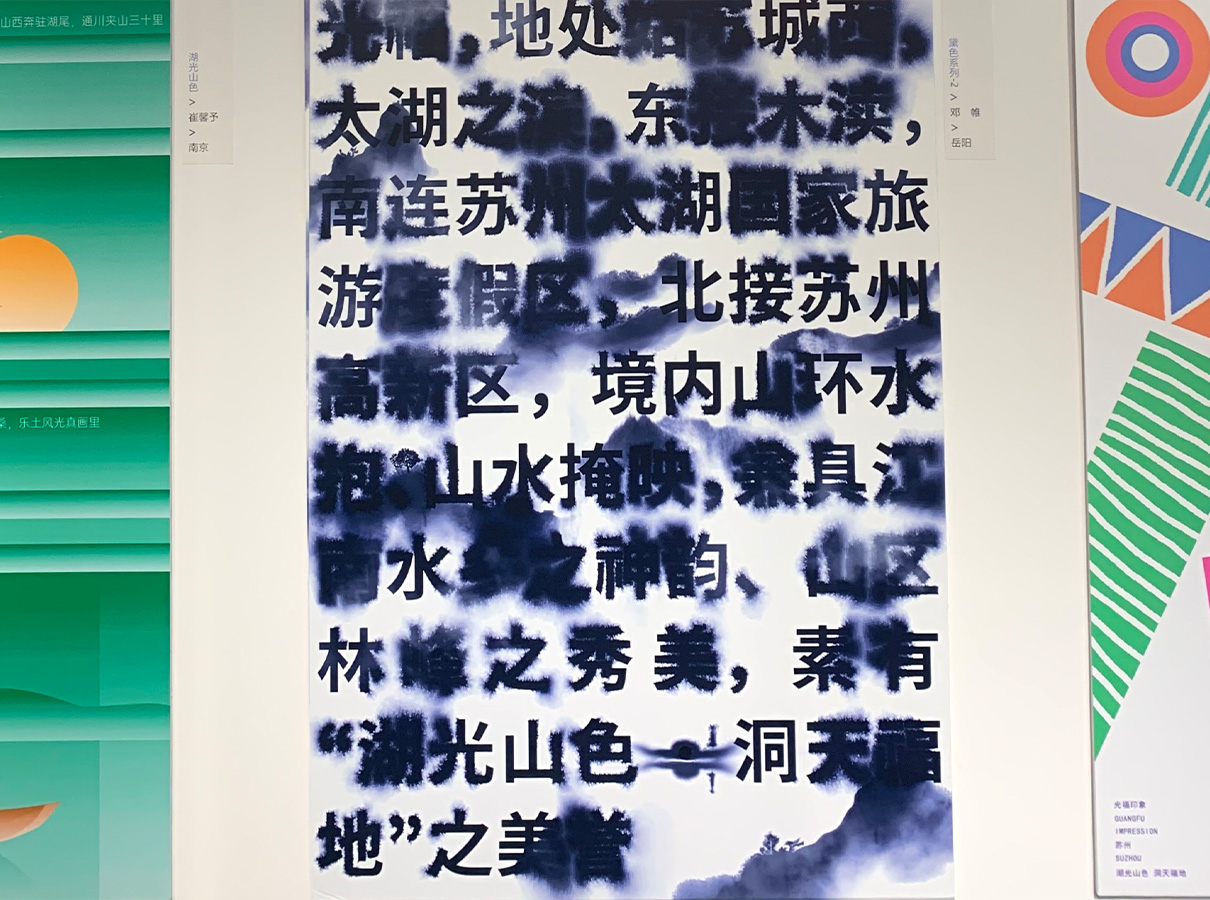 山西奔驻湖尾，通川夹山三十里
，乐土风光真画里
湖光山色
>
崔馨予
>
南京
光福，地处姑苏城西，
太湖之滨，东接木渎，
南连苏州太湖国家旅
游度假区，北接苏州
高新区，境内山环水
抱、山水掩映，兼具江
南水乡之神韵、山区
林峰之秀美，素有
“湖光山色 洞天福
地”之美誉
黛色系列-2
>
邓 帷
>
岳阳
光福印象
GUANGFU
IMPRESSION
苏州
SUZHOU
湖光山色 洞天福地